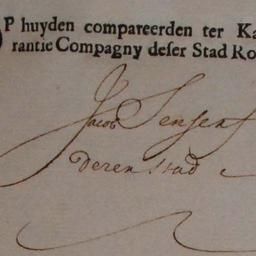 P huyden compareerden ter Ka
rantie Compagny deser Stad Ro
Jacob Sensen
Deren stad